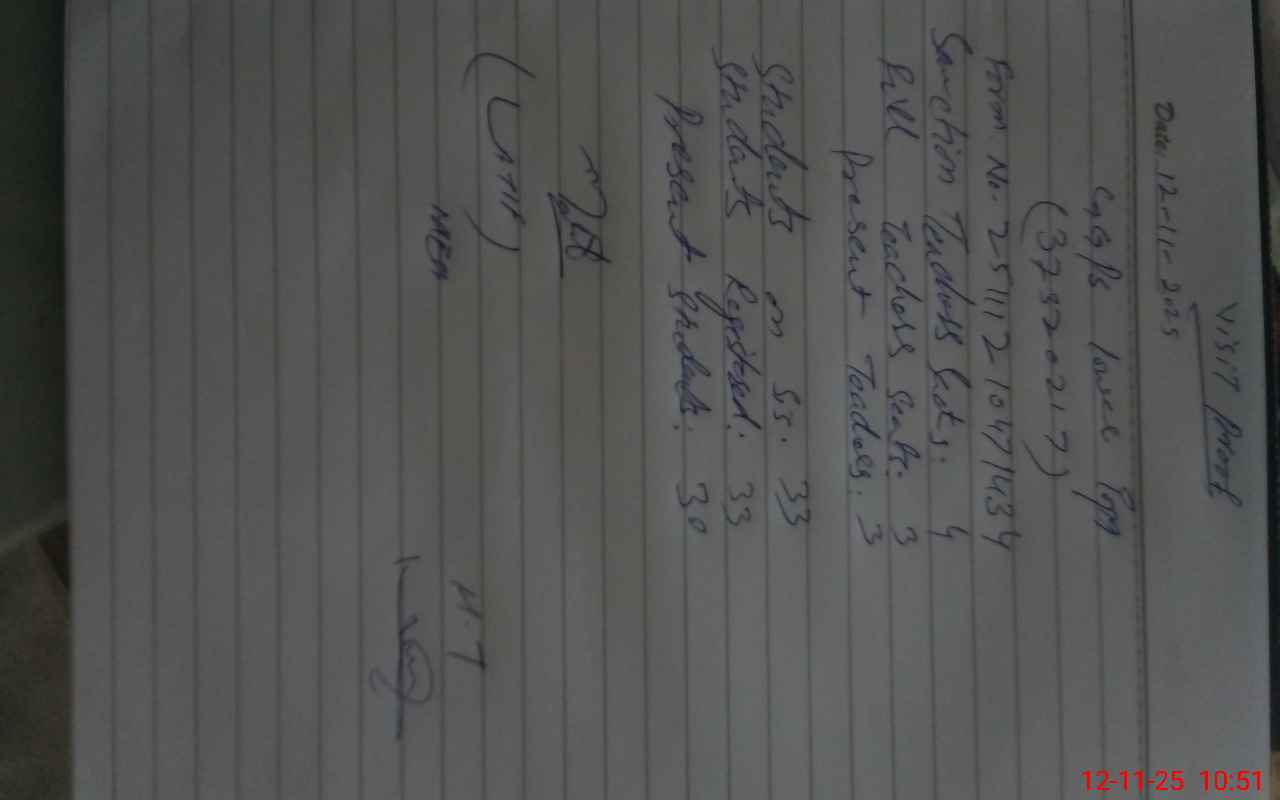 Visit Proof
Date. 12-11-2025
GGPS lower
(37320217)
Form No. 25111210471434
Sanction Teachers Seats. 4
Fill Teachers Seats. 3
Present Teachers. 3
Students on SIS. 33
Students Registered. 33
Present Students. 30
(LATIF)
MEA
H.T
12-11-25 10:51